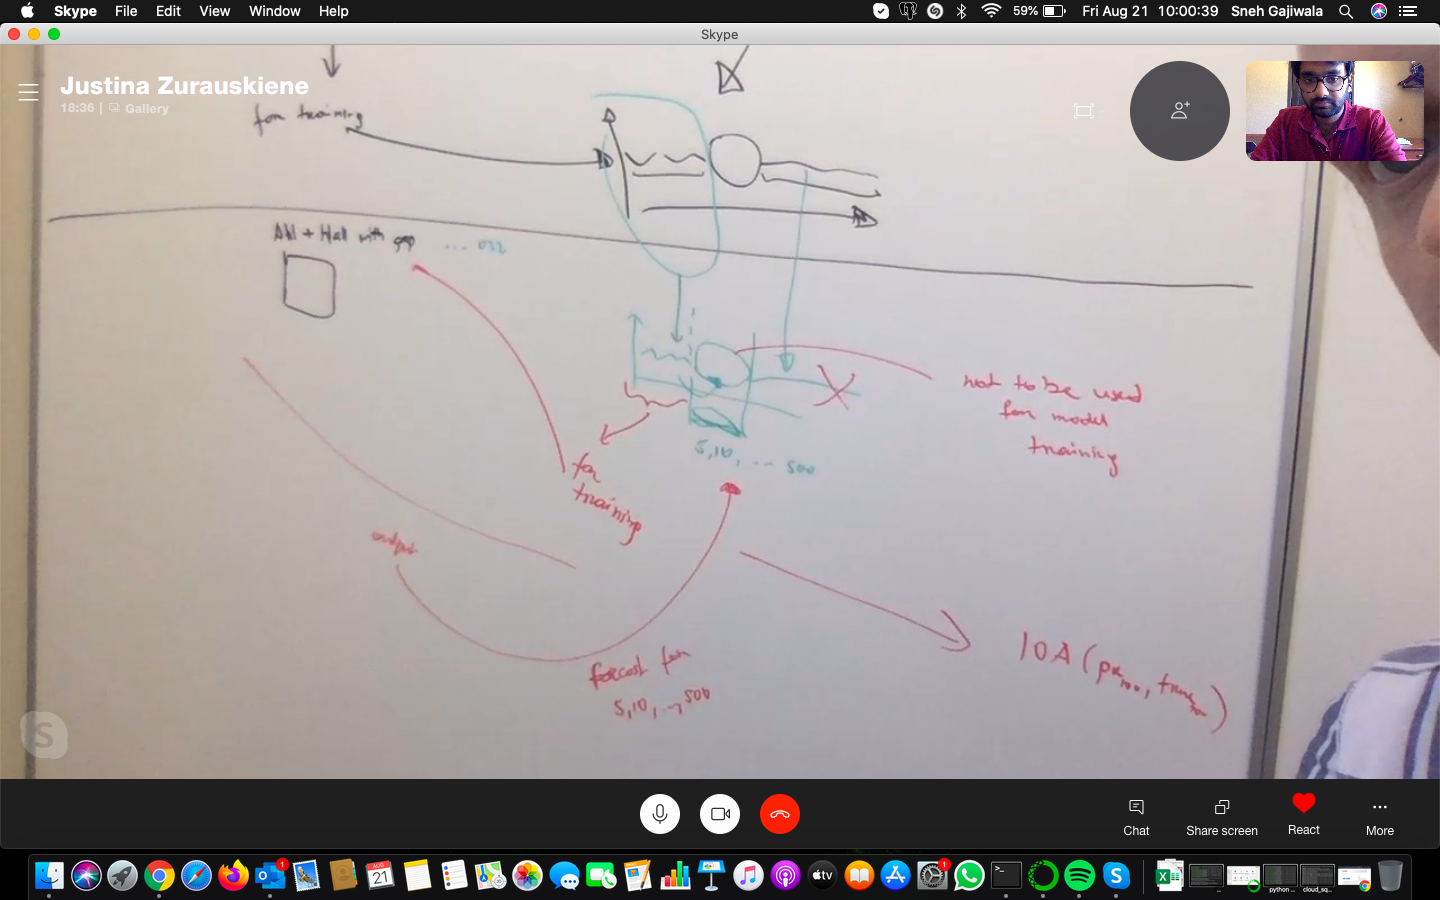 Skype File Edit View Window Help
59% Fri Aug 21 10:00:39 Sneh Gajiwala
Skype
Justina Zurauskiene
18:36 | Gallery
for training
with gap
not to be used
for model
training
5,10, ... 500
for
training
output
forcast for
5,10, ..., 500
S
Chat Share screen React More
1
AUG
21
tv
1
python ...
cloud_sq...